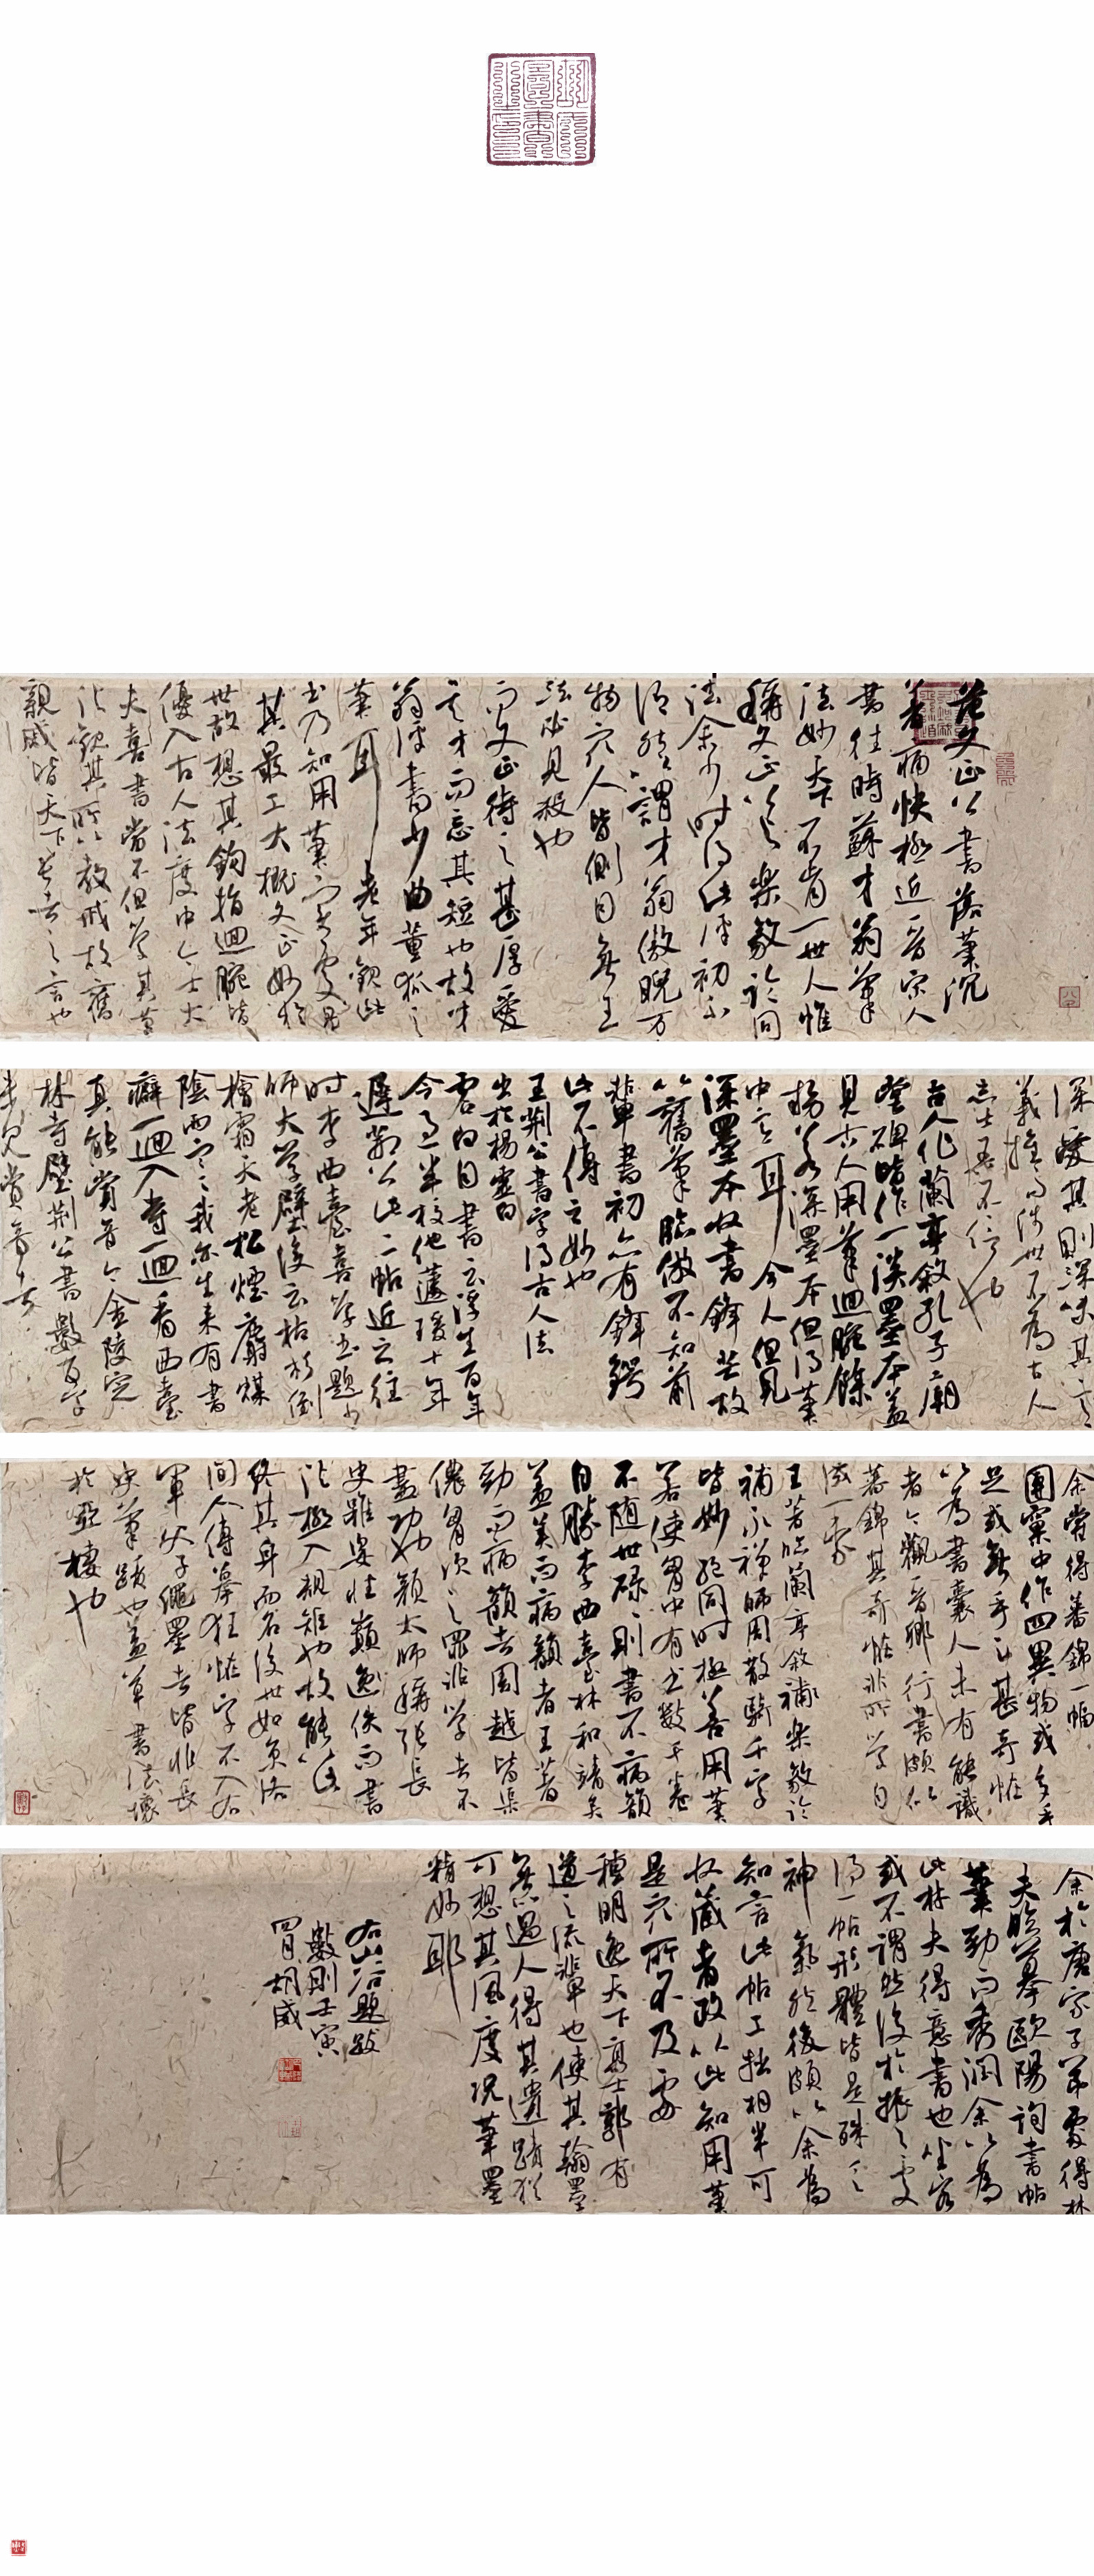 范文正公書落筆沉
著痛快極近晉宋人
書往時蘇才翁筆
法妙天下不肯一世人惟
稱文正公與樂毅論同
法余少時得此評初不
謂才翁傲睨万
物衆人皆側目無王
法必見殺也
而文正待之甚厚愛
其才而忘其短也故才
翁評書少曲董狐之
筆耳老年觀此
書乃知用筆實處是
其最工大概文正妙於
世故想其鉤指回腕皆
優入古人法度中今士大
夫喜書當不但學其筆
法觀其所以教戒故舊
親戚皆天下長者之言也
深愛其則深味其言
義推而涉世不為古人
志士吾不信也
古人作蘭亭敘孔子廟
堂碑皆作一淡墨本蓋
見古人用筆回腕餘
勢若深墨本但得筆
中意耳今人但見
深墨本收書鋒芒故
以舊筆臨倣不知前
輩書初亦有鋒鍔
此不傳之妙也
王荊公書字得古人法
出於楊虛白
虛白自書云浮生百年
今過半校他蘧瑗十年
遲荊公此二帖近之往
時李西臺喜學書題少
師大學壁後云枯杉倒
檜霜天老松煙麝煤
陰雨寒我亦生來有書
癖一回入寺一回看西臺
真能賞音今金陵定
林寺壁荊公書數百字
未見賞音者
余嘗得蕃錦一幅
團窠中作四異物或多手
足或無手足甚奇怪
以為書囊人未有能識
者今觀晉卿行書頗似
蕃錦其奇怪非所學自
成一家
王著臨蘭亭敘補樂毅論
補永禪師周散騎千字
皆妙絕同時極善用筆
若使胸中有書數千卷
不隨世碌碌則書不病韻
自勝李西臺林和靖矣
蓋美而病韻者王著
勁而病韻者周越皆渠
儂胸次之罪非學者不
盡功也顏太師稱張長
史雖姿性顛逸佚而書
法極入規矩也故能以此
終其身而名後世如京洛
間人傳摹狂怪字不入右
軍父子繩墨者皆非長
史筆蹟也蓋草書法壞
於亞棲也
余於唐家子弟處得林
夫臨摹歐陽詢書帖
筆勁而秀潤余以為
此林夫得意書也坐客
或不謂然後於振之處
得一帖形體皆是殊乏
神氣然後頗以余為
知言此帖工拙相半可
收藏者政以此知用筆
是众所不及處
種明逸天下高士郭有
道之流輩也使其翰墨
無過人得其遺蹟猶
可想其風度況筆墨
精妙耶
右山谷題跋
數則壬寅
四月胡威